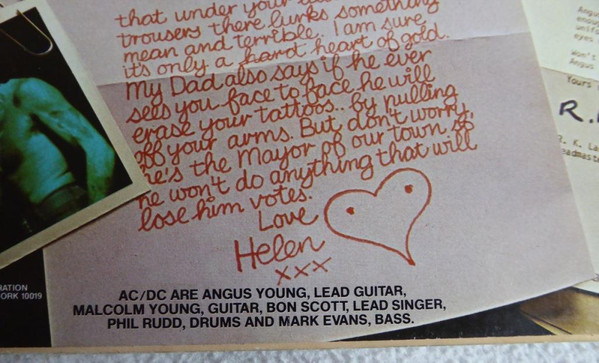 that under your
trousers there lurks something
mean and terrible. I am sure
it's only a hard heart of gold.
My Dad also says if he ever
sees you face to face he will
erase your tattoos.. by pulling
off your arms. But, don't worry,
he's the Mayor of our town so
he won't do anything that will
lose him votes.
Love
Helen
xxx
Angus
eyes
Won't
Angus
Yours
R.
R. K. La
eadmaste
RATION
ORK 10019
AC/DC ARE ANGUS YOUNG, LEAD GUITAR,
MALCOLM YOUNG, GUITAR, BON SCOTT, LEAD SINGER,
PHIL RUDD, DRUMS AND MARK EVANS, BASS.